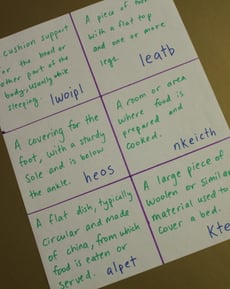 cushion support
for the head or
other part of the
body, usually while
sleeping. lwoipl
A piece of
with a flat top
and one or more
legs. leatb
A covering for the
foot, with a sturdy
Sole and is below
the ankle. heos
A room or area
where food is
prepared and
cooked. nkeicth
A flat dish, typically
circular and made
of china, from which
food is eaten or
served. alpet
A large piece of
woolen or similar
material used to
cover a bed. Kte